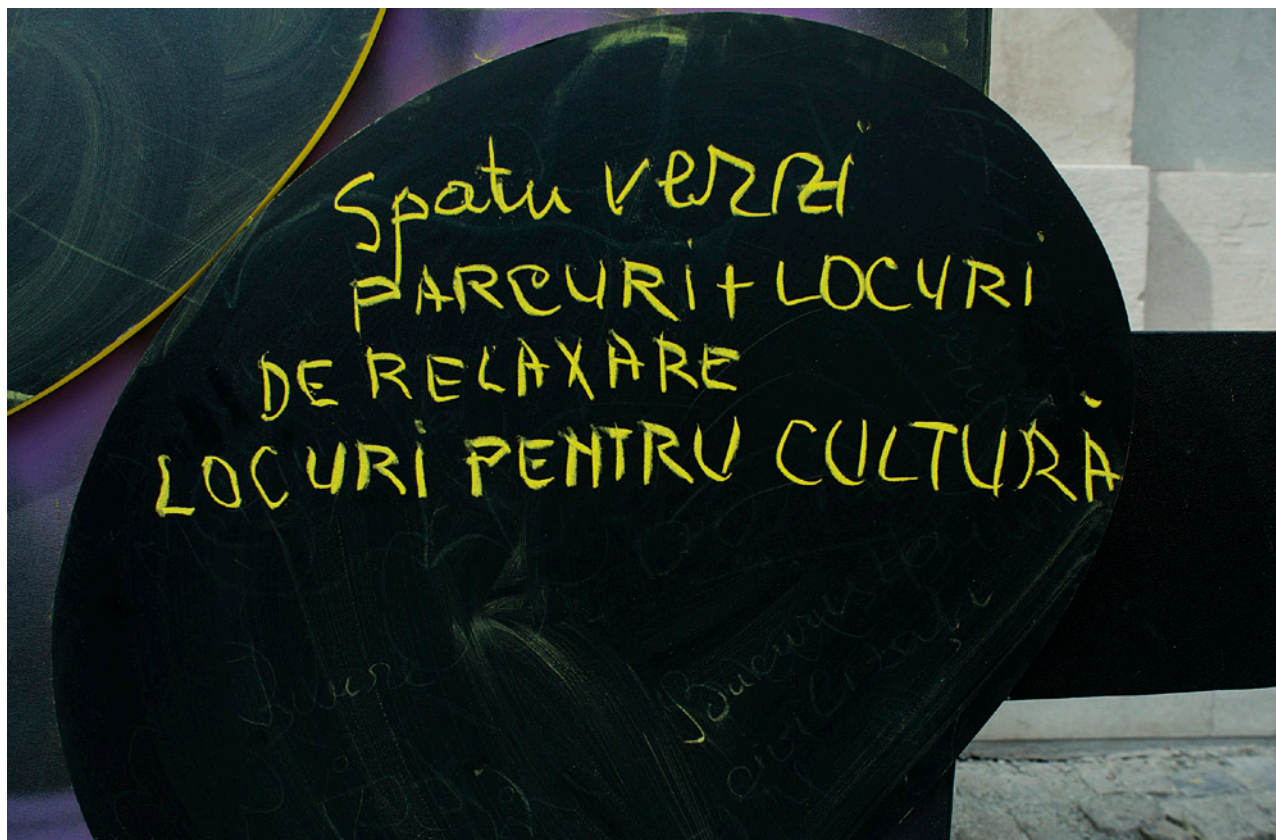 Spatii verzi
PARCURI + LOCURI
DE RELAXARE
LOCURI PENTRU CULTURĂ